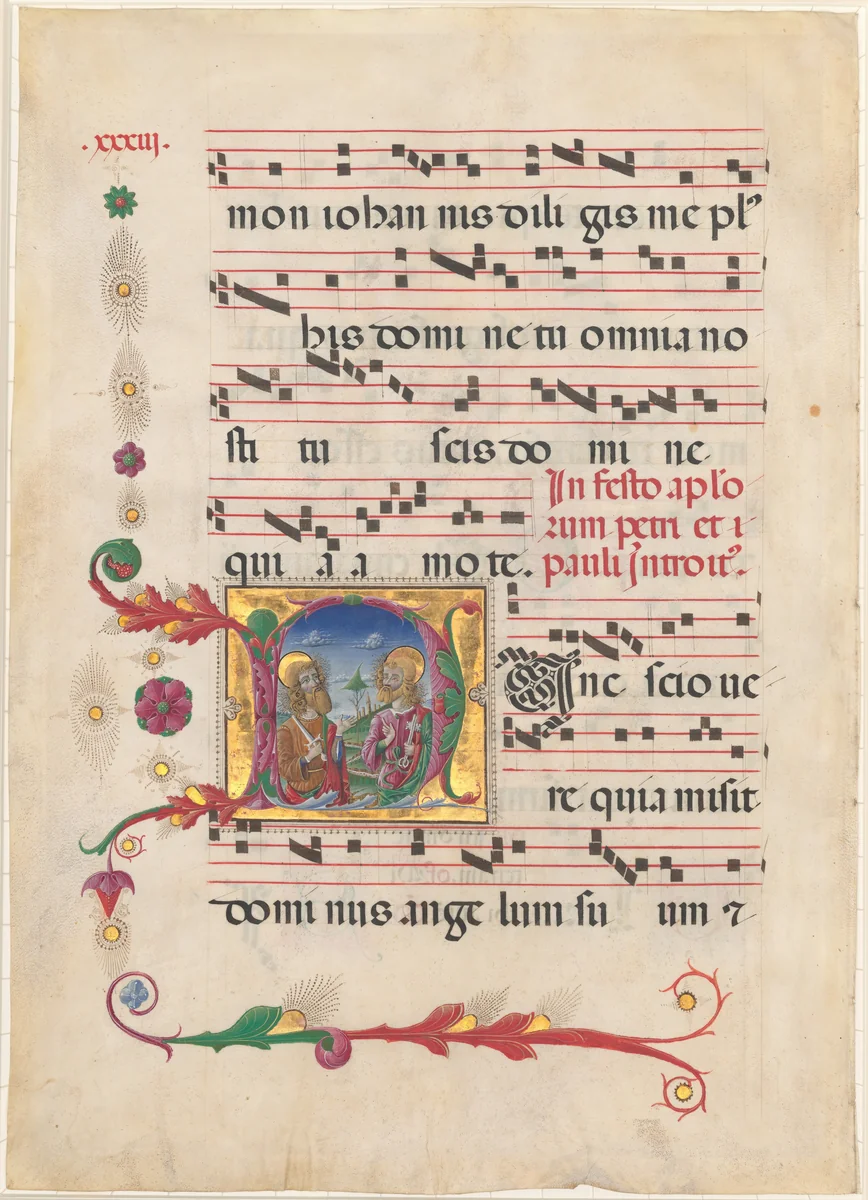 .xxxiij.
mon iohan nis dili gis me plꝰ
his domi ne tu omnia no
sti tu scis do mi ne
qui a a mo te.
In festo aplo
rum petri et i
pauli Introitꝰ.
Nunc scio ue
re quia misit
domi nus ange lum su um ⁊